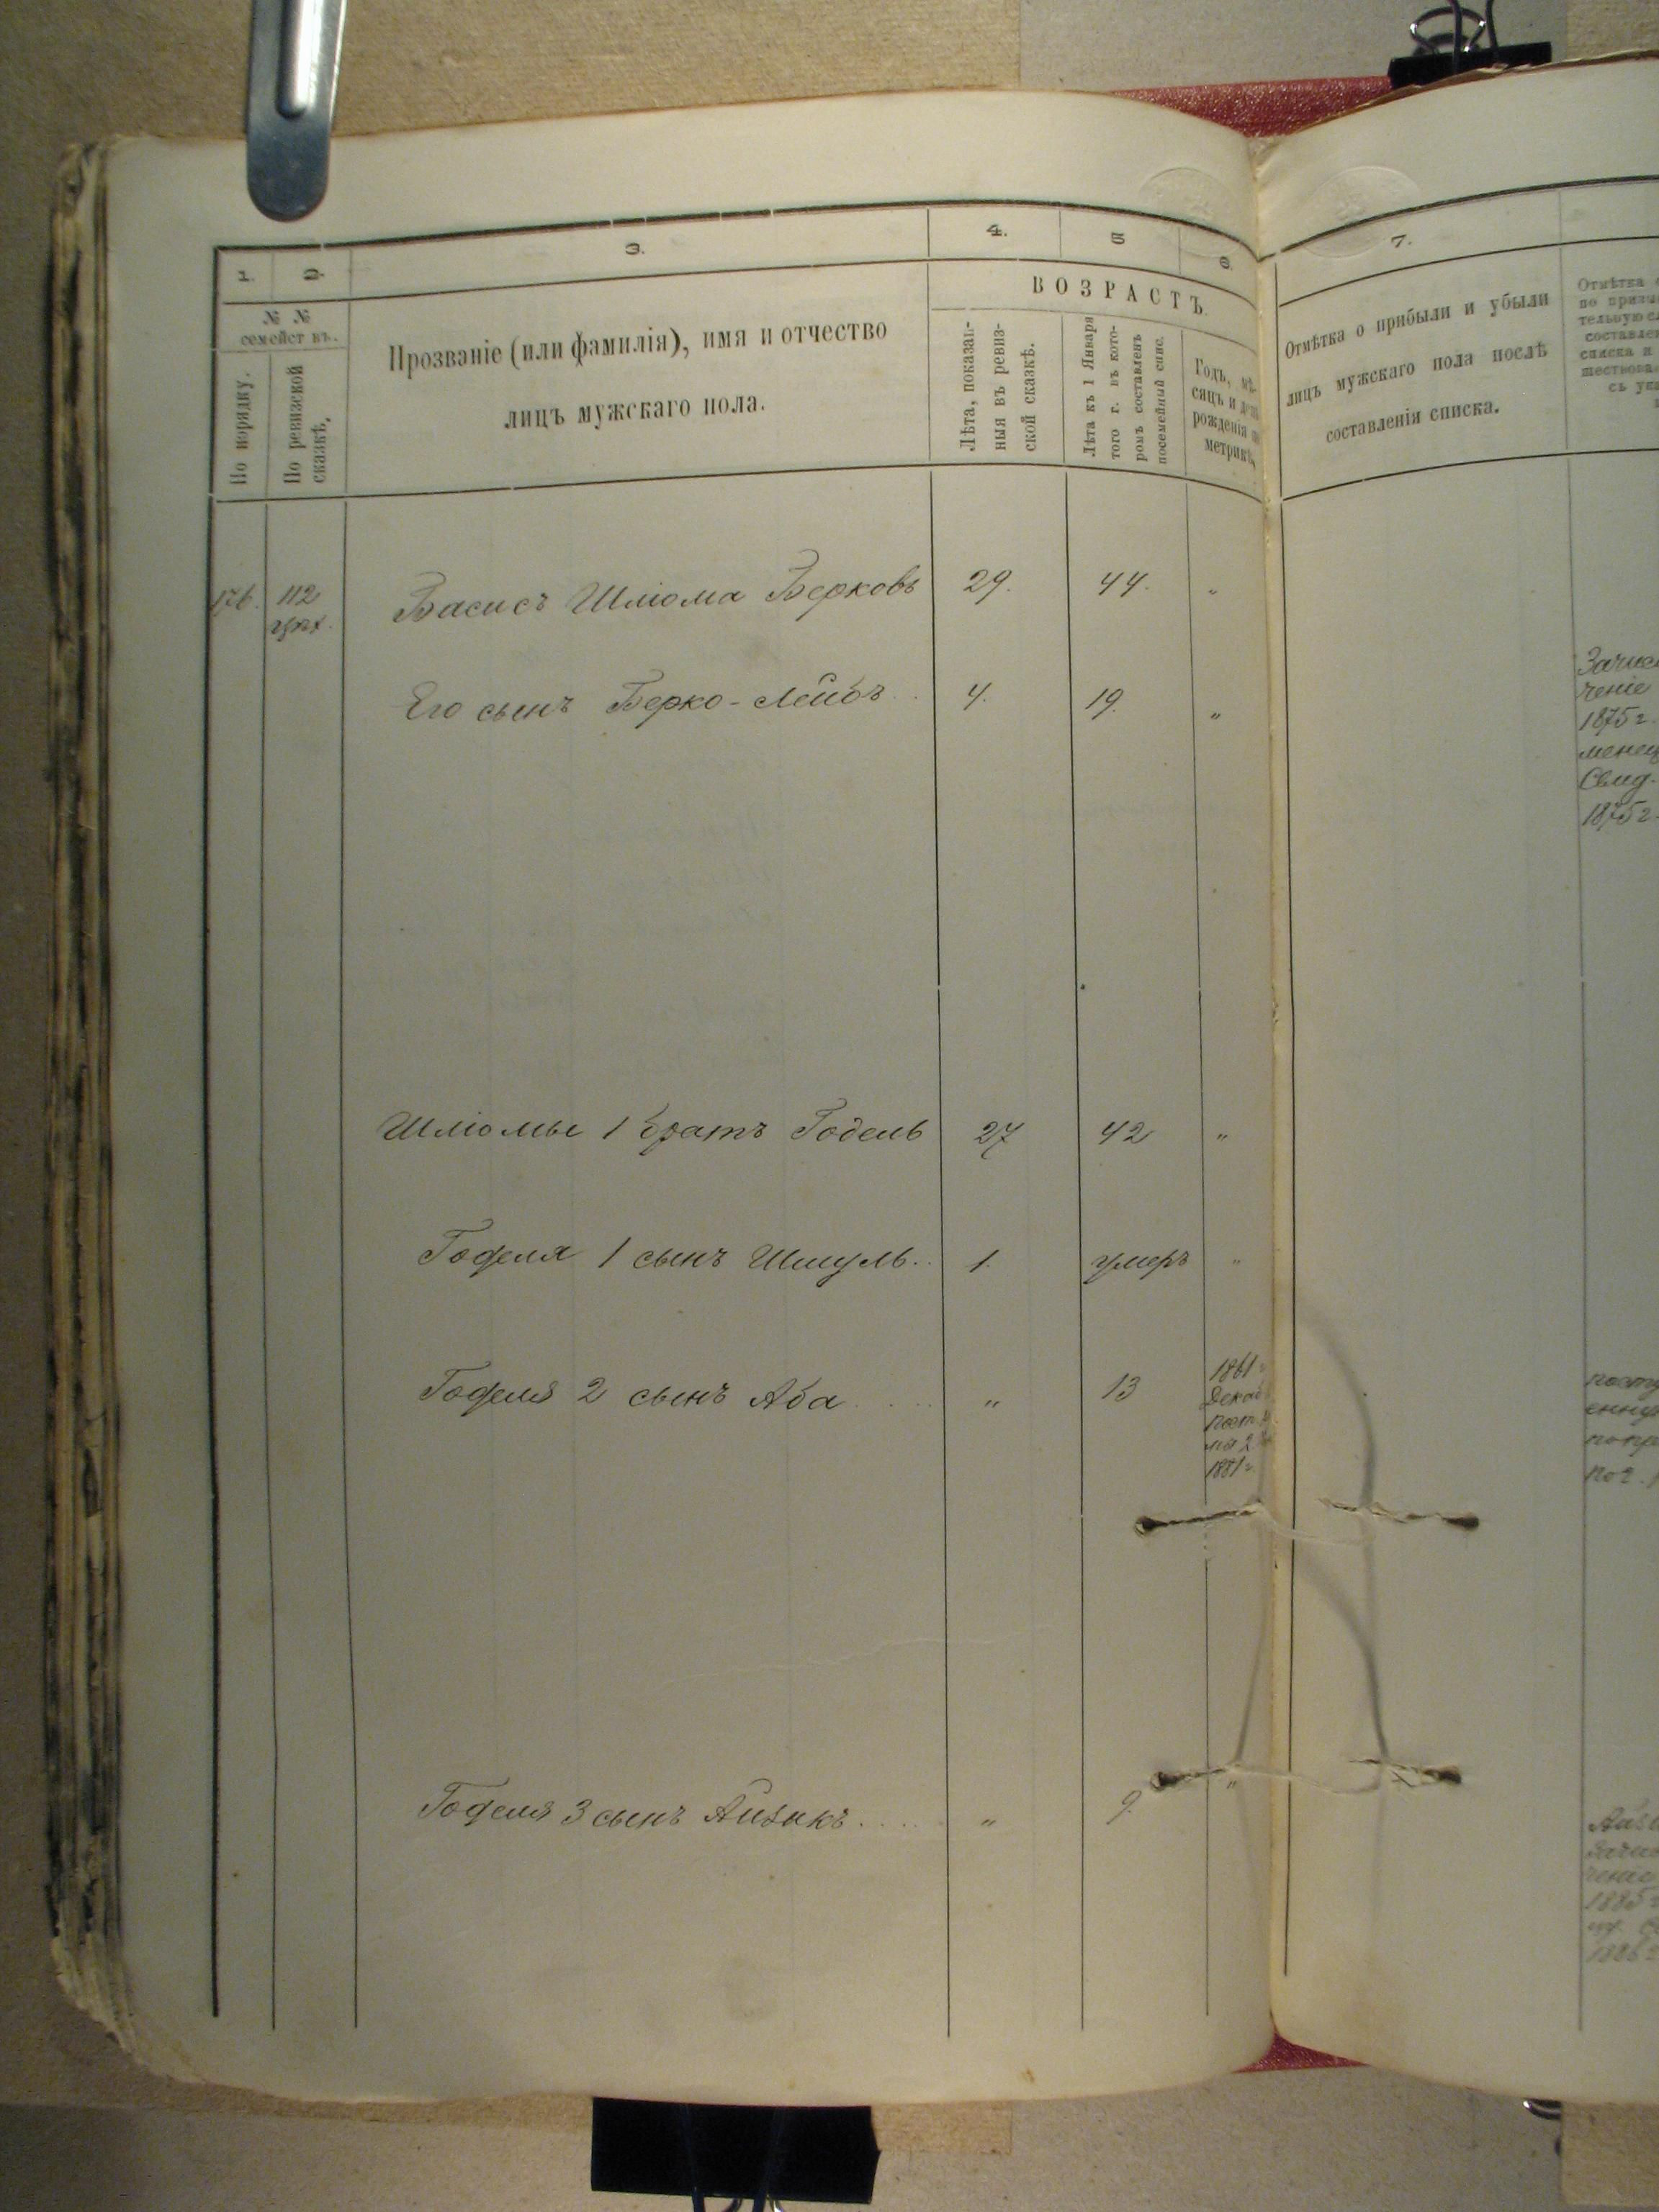 1.
2.
3.
4.
5
6.
7.
№ №
семействъ.
По порядку.
По ревизской
сказкѣ.
Прозваніе (или фамилія), имя и отчество
лицъ мужскаго пола.
ВОЗРАСТЪ.
Лѣта, показан-
ныя въ ревиз-
ской сказкѣ.
Лѣта къ 1 Января
того г. въ кото-
ромъ составленъ
посемейный спис.
Годъ, мѣ-
сяцъ и день
рожденія по
метрикѣ,
Отмѣтка о прибыли и убыли
лицъ мужскаго пола послѣ
составленія списка.
Отмѣтка
по
составлен
списка и
176. 112 Басисъ Шліома Берковъ 29. 44. "
Его сынъ Берко-Лейбъ.. 4. 19. "
1875 г.
Свид.
1875 г.
Шліомы 1 братъ Годель 27 42 "
Годеля 1 сынъ Шмуль.. 1. умеръ "
Годеля 2 сынъ Аба.... " 13 1861 г
Декаб
1881 г.
Годеля 3 сынъ Айзикъ..... " 9. "